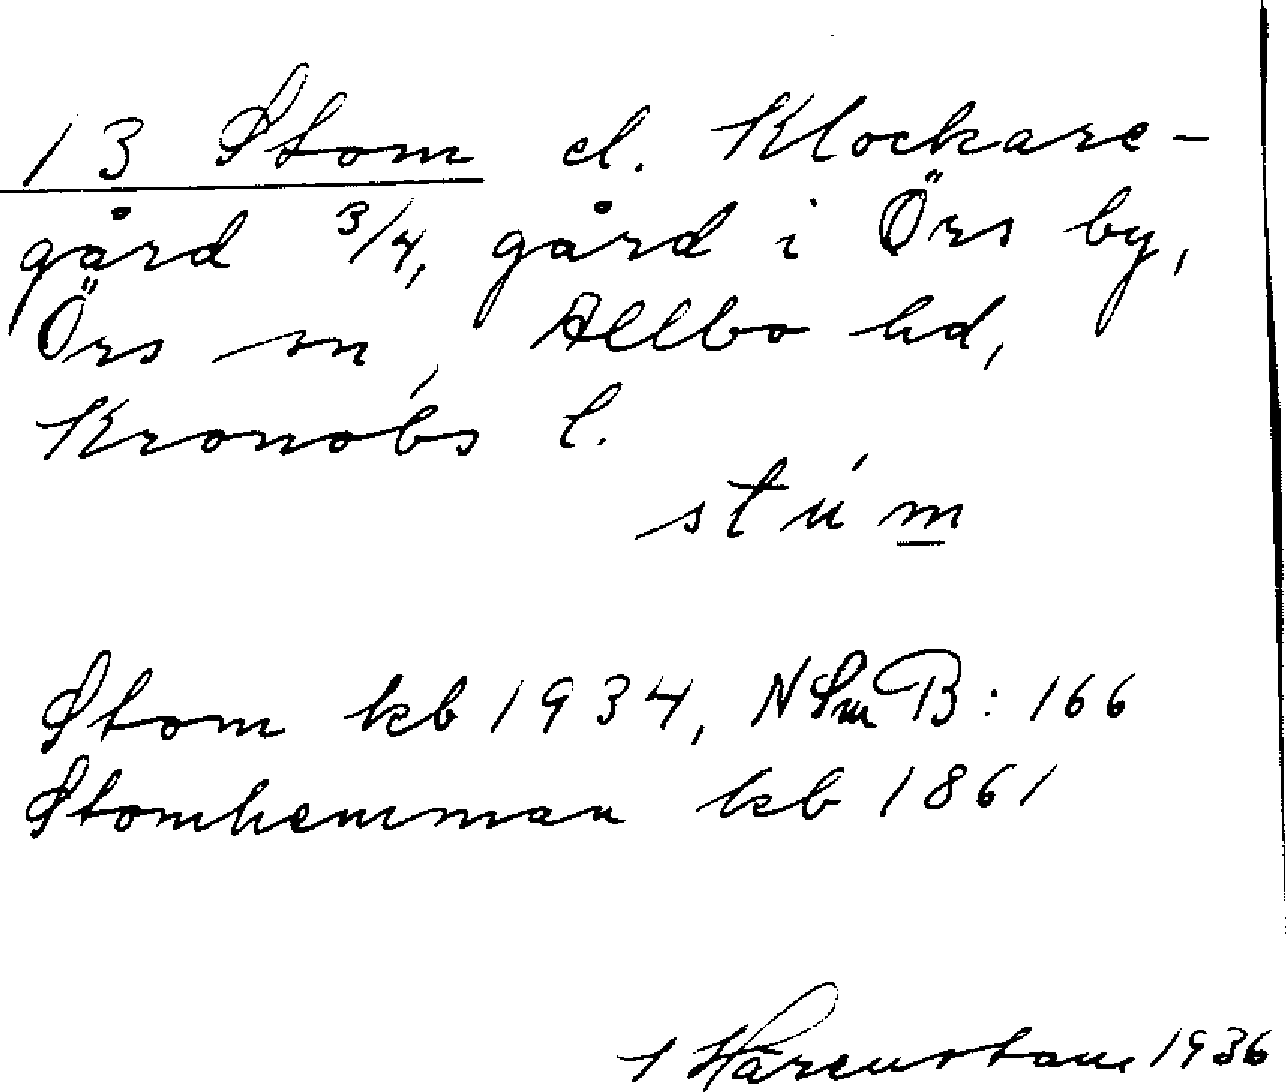 13 Stom el. Klockare-
gård 3/4, gård i Örs by,
Örs sn, Allbo hd,
Kronobs l.
stúm
Stom kb 1934, NSmB: 166
Stomhemman kb 1861
1936